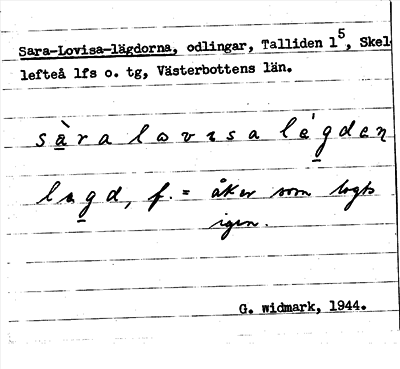 Sara-Lovisa-lägdorna, odlingar, Talliden 1⁵, Skel-
lefteå lfs o. tg, Västerbottens län.
sàra lovisa légden
lägd, f. = åker som lagts
igen.
G. Widmark, 1944.